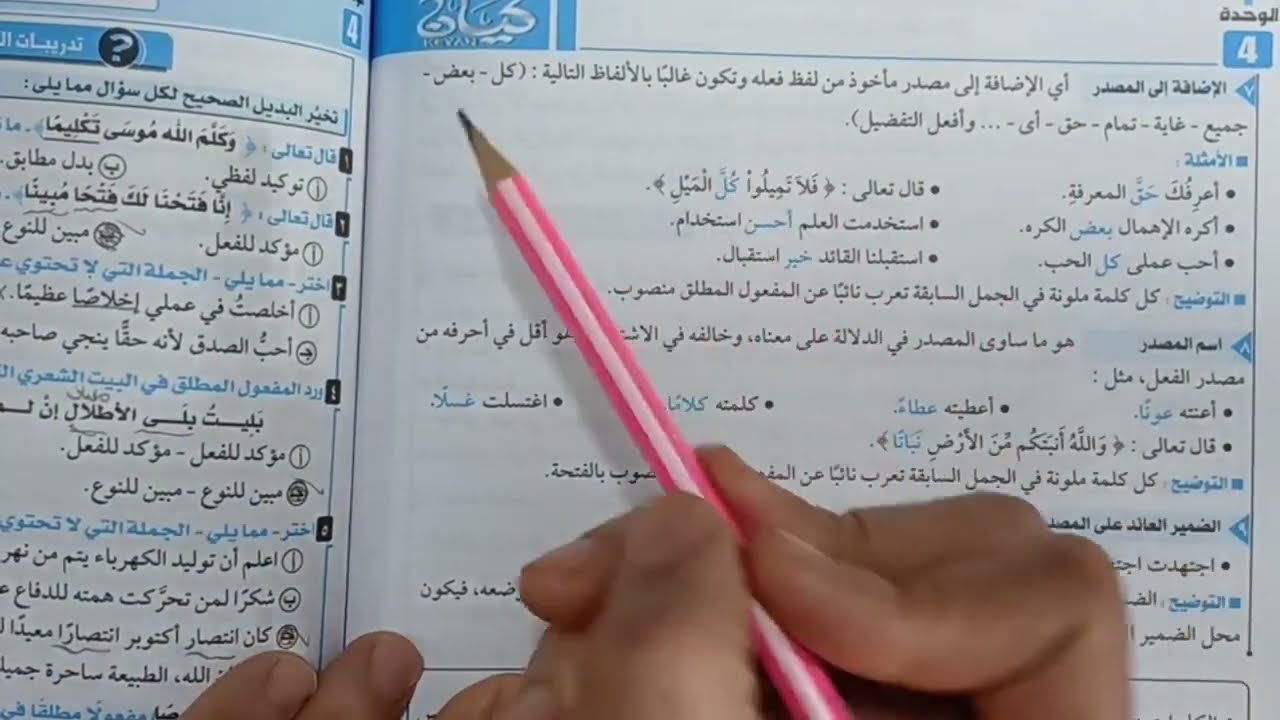 الوحدة
4
كيان
KEYAN
٧ الإضافة إلى المصدر أي الإضافة إلى مصدر مأخوذ من لفظ فعله وتكون غالبًا بالألفاظ التالية : (كل - بعض -
جميع - غاية - تمام - حق - أى - ... وأفعل التفضيل).
الأمثلة :
• أعرِفُكَ حَقَّ المعرفةِ. • قال تعالى : ﴿ فَلاَ تَمِيلُواْ كُلَّ الْمَيْلِ ﴾.
• أكره الإهمال بعض الكره. • استخدمت العلم أحسن استخدام.
• أحب عملى كل الحب. • استقبلنا القائد خير استقبال.
التوضيح : كل كلمة ملونة في الجمل السابقة تعرب نائبًا عن المفعول المطلق منصوب.
٨ اسم المصدر هو ما ساوى المصدر في الدلالة على معناه، وخالفه في أقل في أحرفه من
مصدر الفعل، مثل :
• أعنته عونًا. • أعطيته عطاءً. • كلمته كلامًا. • اغتسلت غسلًا.
• قال تعالى : ﴿ وَاللَّهُ أَنبَتَكُم مِّنَ الأَرْضِ نَبَاتًا ﴾.
التوضيح : كل كلمة ملونة في الجمل السابقة تعرب نائبًا عن بالفتحة.
٩ الضمير العائد على
• اجتهدت
التوضيح : فيكون
محل الضمير
4
؟ تدريبات
تخيَّر البديل الصحيح لكل سؤال مما يلى :
١ قال تعالى : ﴿ وَكَلَّمَ الله مُوسَى تَكْلِيمًا ﴾.
أ توكيد لفظي. ب بدل مطابق.
٢ قال تعالى : ﴿ إِنَّا فَتَحْنَا لَكَ فَتْحًا مُبِينًا ﴾.
أ مؤكد للفعل. مبين للنوع
٣ اختر - مما يلي - الجملة التي لا تحتوي
أ أخلصتُ في عملي إخلاصًا عظيمًا.
ج أحبُّ الصدق لأنه حقًّا ينجي صاحبه
٤ ورد المفعول المطلق في البيت الشعري
بَلِيتُ بِلَى الأطْلَالِ إنْ
أ مؤكد للفعل - مؤكد للفعل.
مبين للنوع - مبين للنوع.
٥ اختر - مما يلي - الجملة التي لا تحتوي
أ اعلم أن توليد الكهرباء يتم من نهر
ب شكرًا لمن تحرَّكت همته للدفاع
كان انتصار أكتوبر انتصارًا معيدًا
الله، الطبيعة ساحرة
مفعولًا مطلقًا في